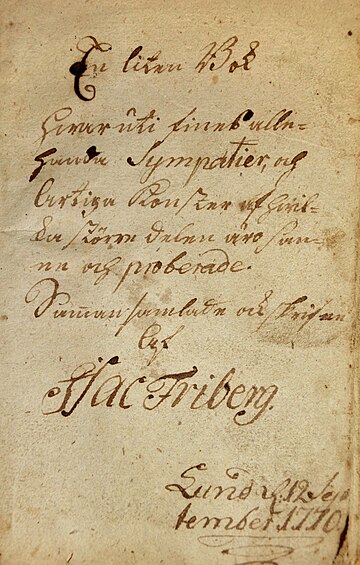 En liten Bok
hvaruti fines alle-
handa Sympatier, och
lartiga Konster af hvil-
ka större delen äro san-
ne och proberade.
Sammansamlade och skrifne
af
Isac Friberg.
Lund d. 12 Sep
tember 1770.